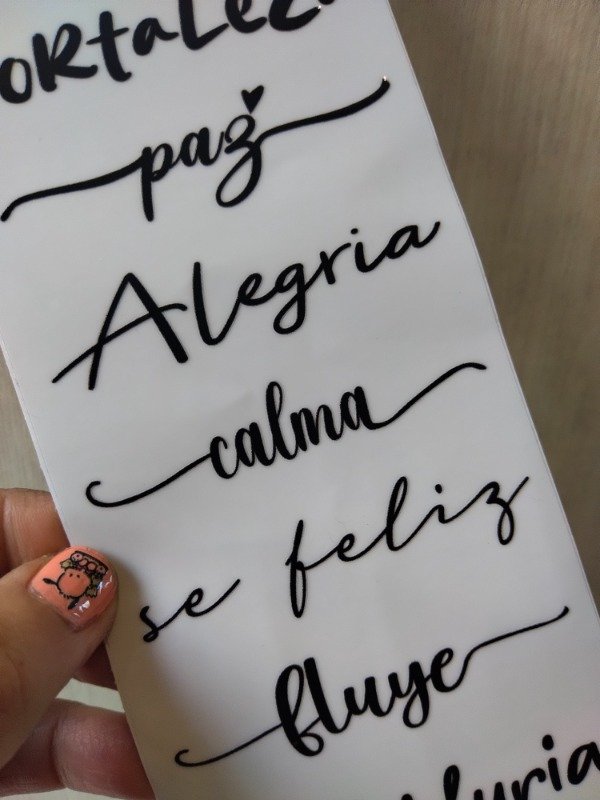 fortaleza
paz
Alegria
calma
se feliz
fluye